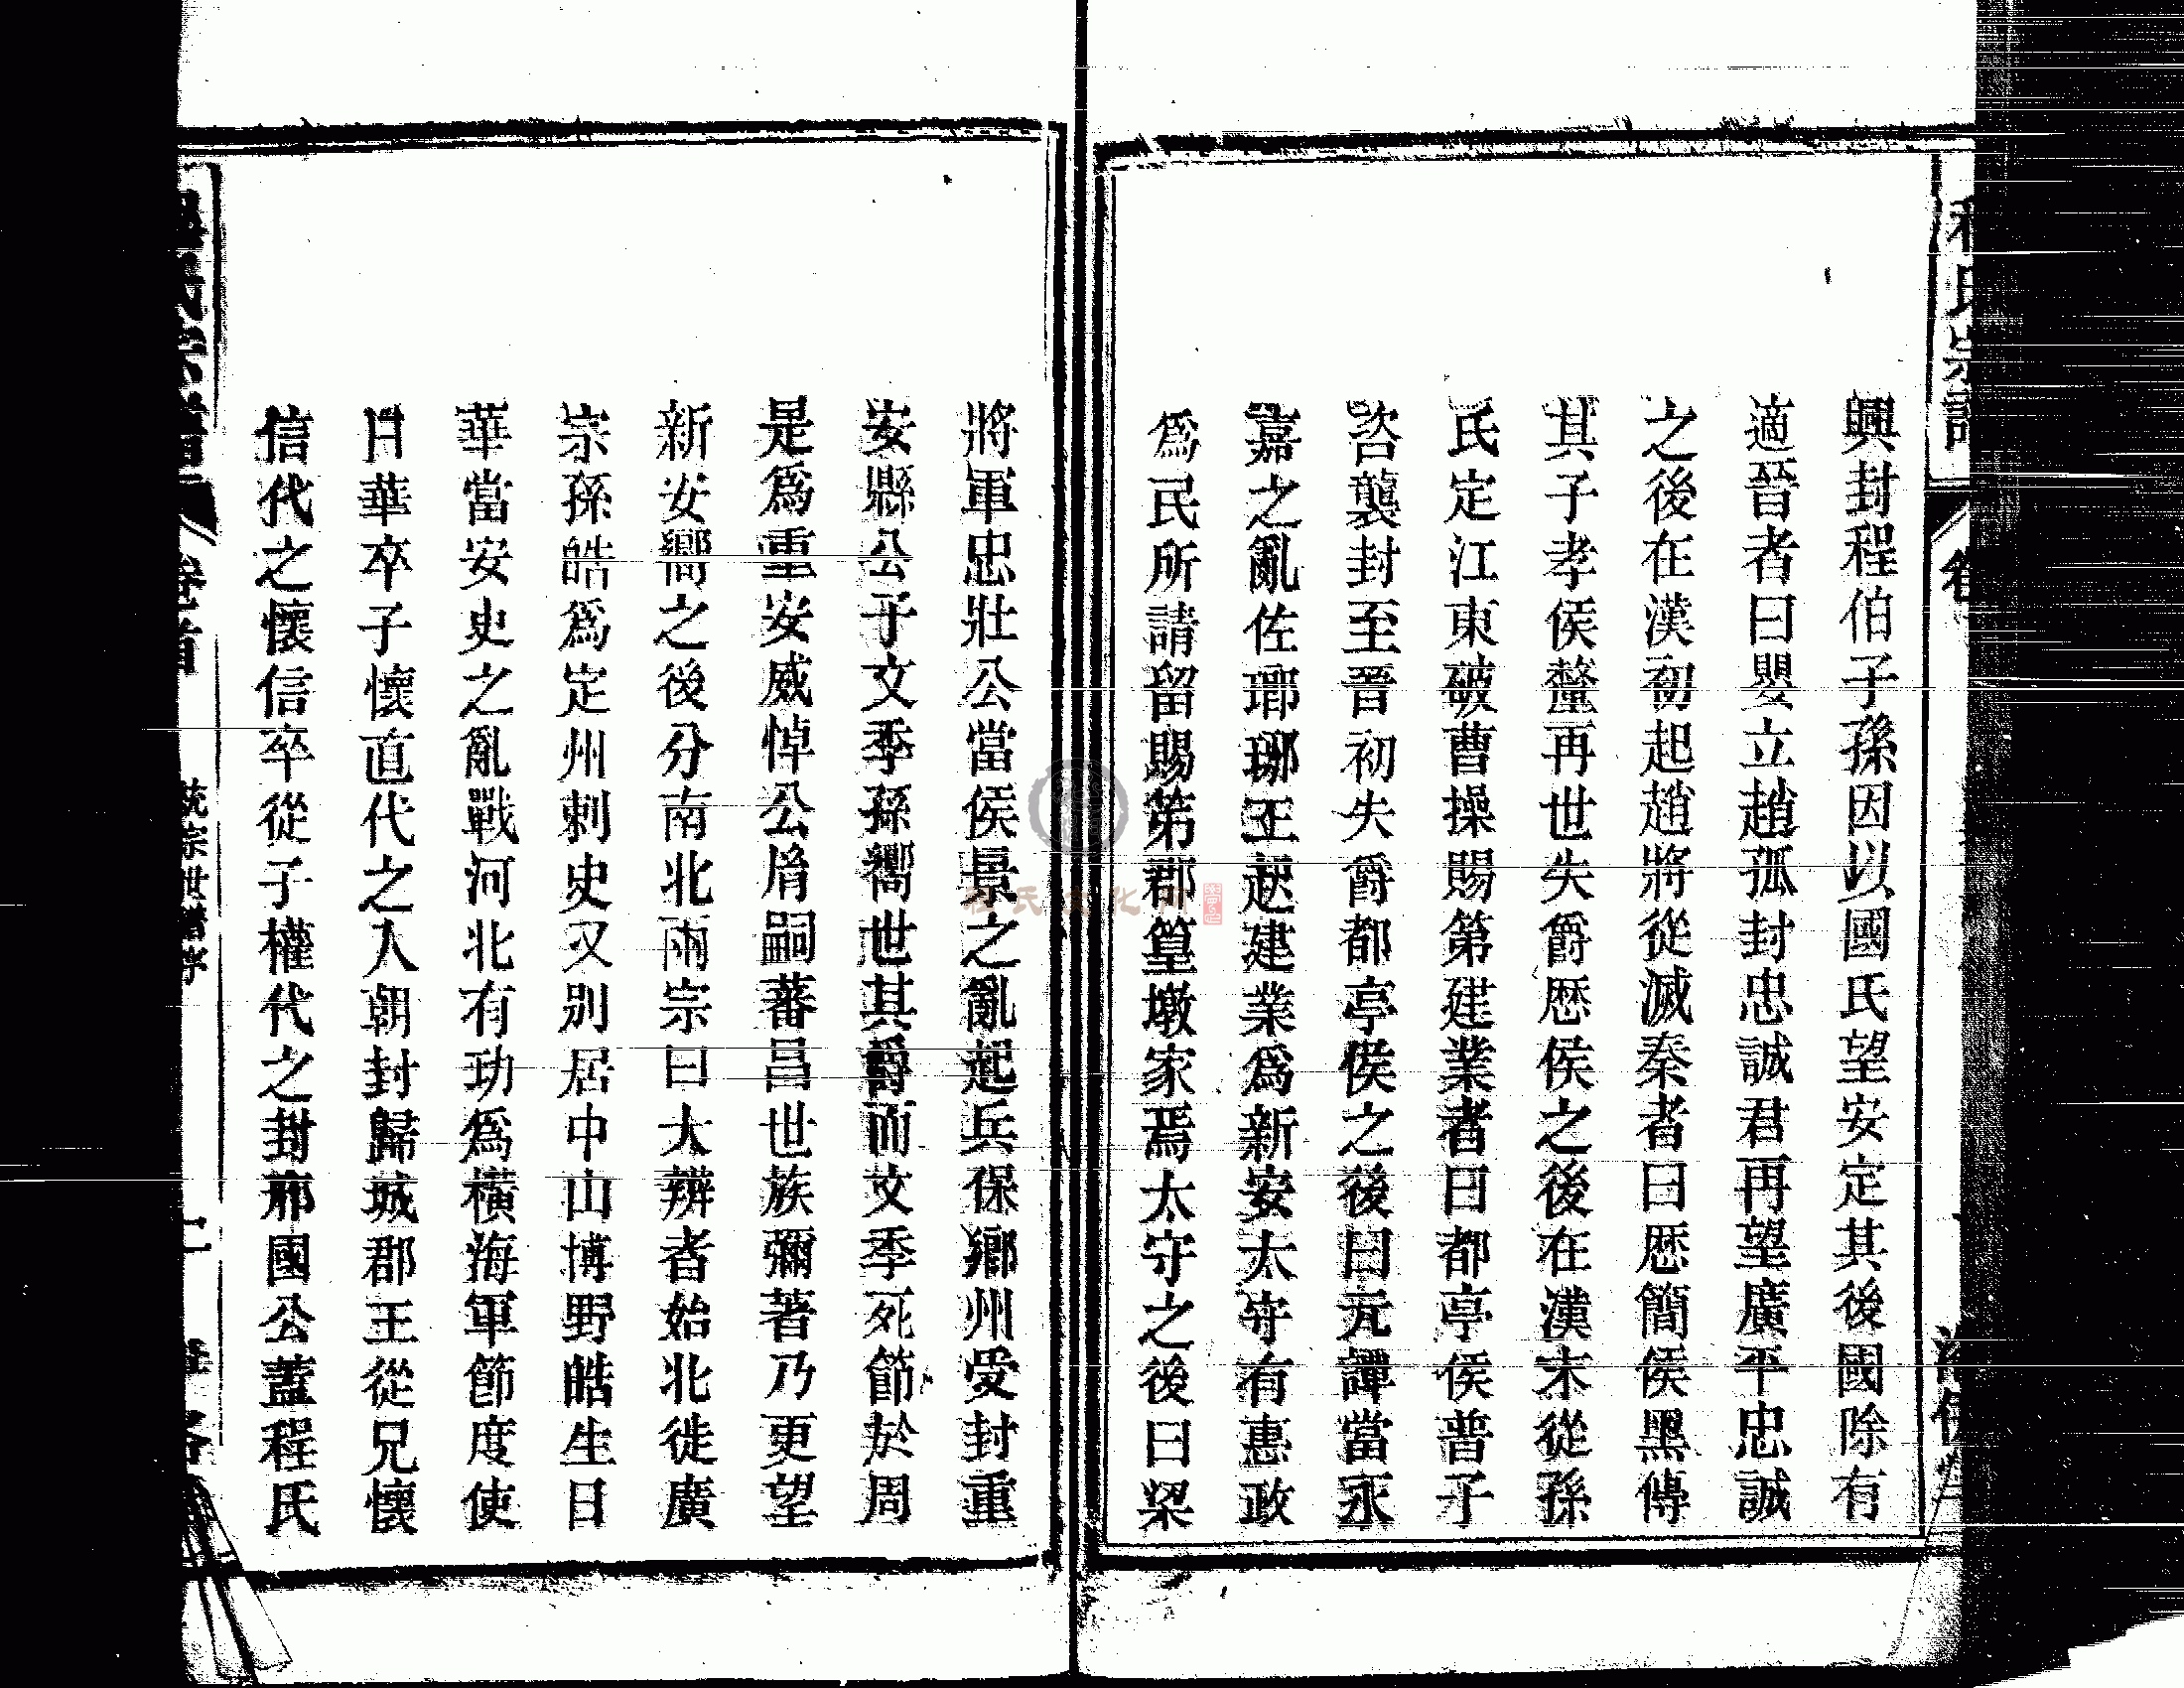 程氏宗譜
卷
興封程伯子孫因以國氏望安定其後國除有
適晉者曰嬰立趙孤封忠誠君再望廣平忠誠
之後在漢初起趙將從滅秦者曰歷簡侯黑傳
其子孝侯釐再世失爵歷侯之後在漢末從孫
氏定江東破曹操賜第建業者曰都亭侯普子
咨襲封至晉初失爵都亭侯之後曰元譚當永
嘉之亂佐瑯琊王起建業爲新安太守有惠政
爲民所請留賜第郡篁墩家焉太守之後曰梁
將軍忠壯公當侯景之亂起兵保鄉州受封重
安縣公子文季孫嚮世其爵而文季死節於周
是爲重安威悼公脩嗣蕃昌世族彌著乃更望
新安嚮之後分南北兩宗曰大辨者始北徙廣
宗孫皓爲定州刺史又別居中山博野皓生日
華當安史之亂戰河北有功爲橫海軍節度使
日華卒子懷直代之入朝封歸城郡王從兄懷
信代之懷信卒從子權代之封邢國公蓋程氏
卷首
統宗世譜序